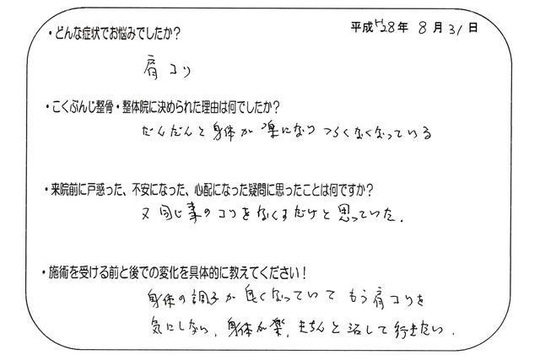 平成28年 8月31日
・どんな症状でお悩みでしたか?
肩コリ
・こくぶんじ整骨・整体院に決められた理由は何でしたか?
だんだんと身体が楽になり つらくなくなっている
・来院前に戸惑った、不安になった、心配になった疑問に思ったことは何ですか?
又同じ事のコリをなくすだけと思っていた.
・施術を受ける前と後での変化を具体的に教えてください!
身体の調子が良くなっていて もう肩コリを
気にしない、身体が楽、きちんと治して行きたい.